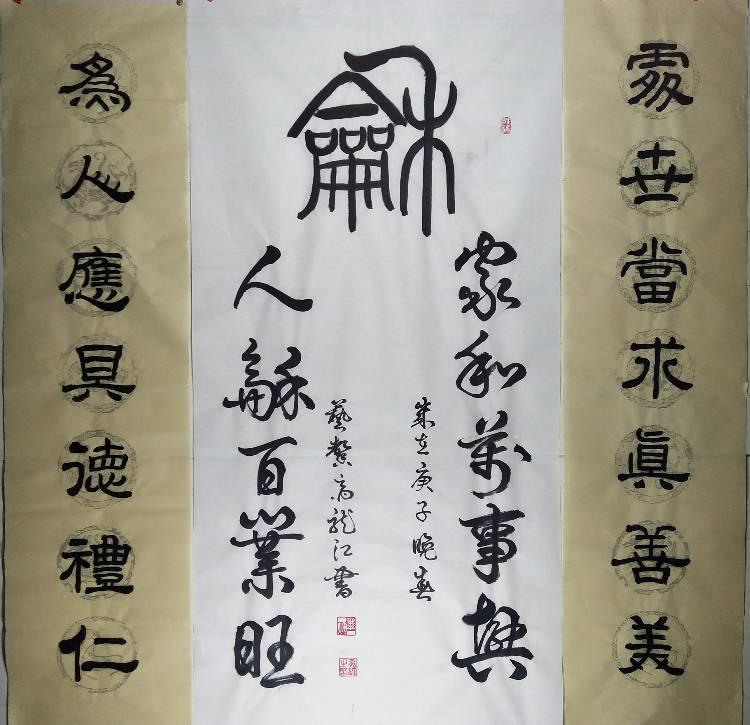 處世當求眞善美
龢
家和萬事興
歲在庚子晚春
藝 高龍江書
人龢百業旺
為人應具德禮仁